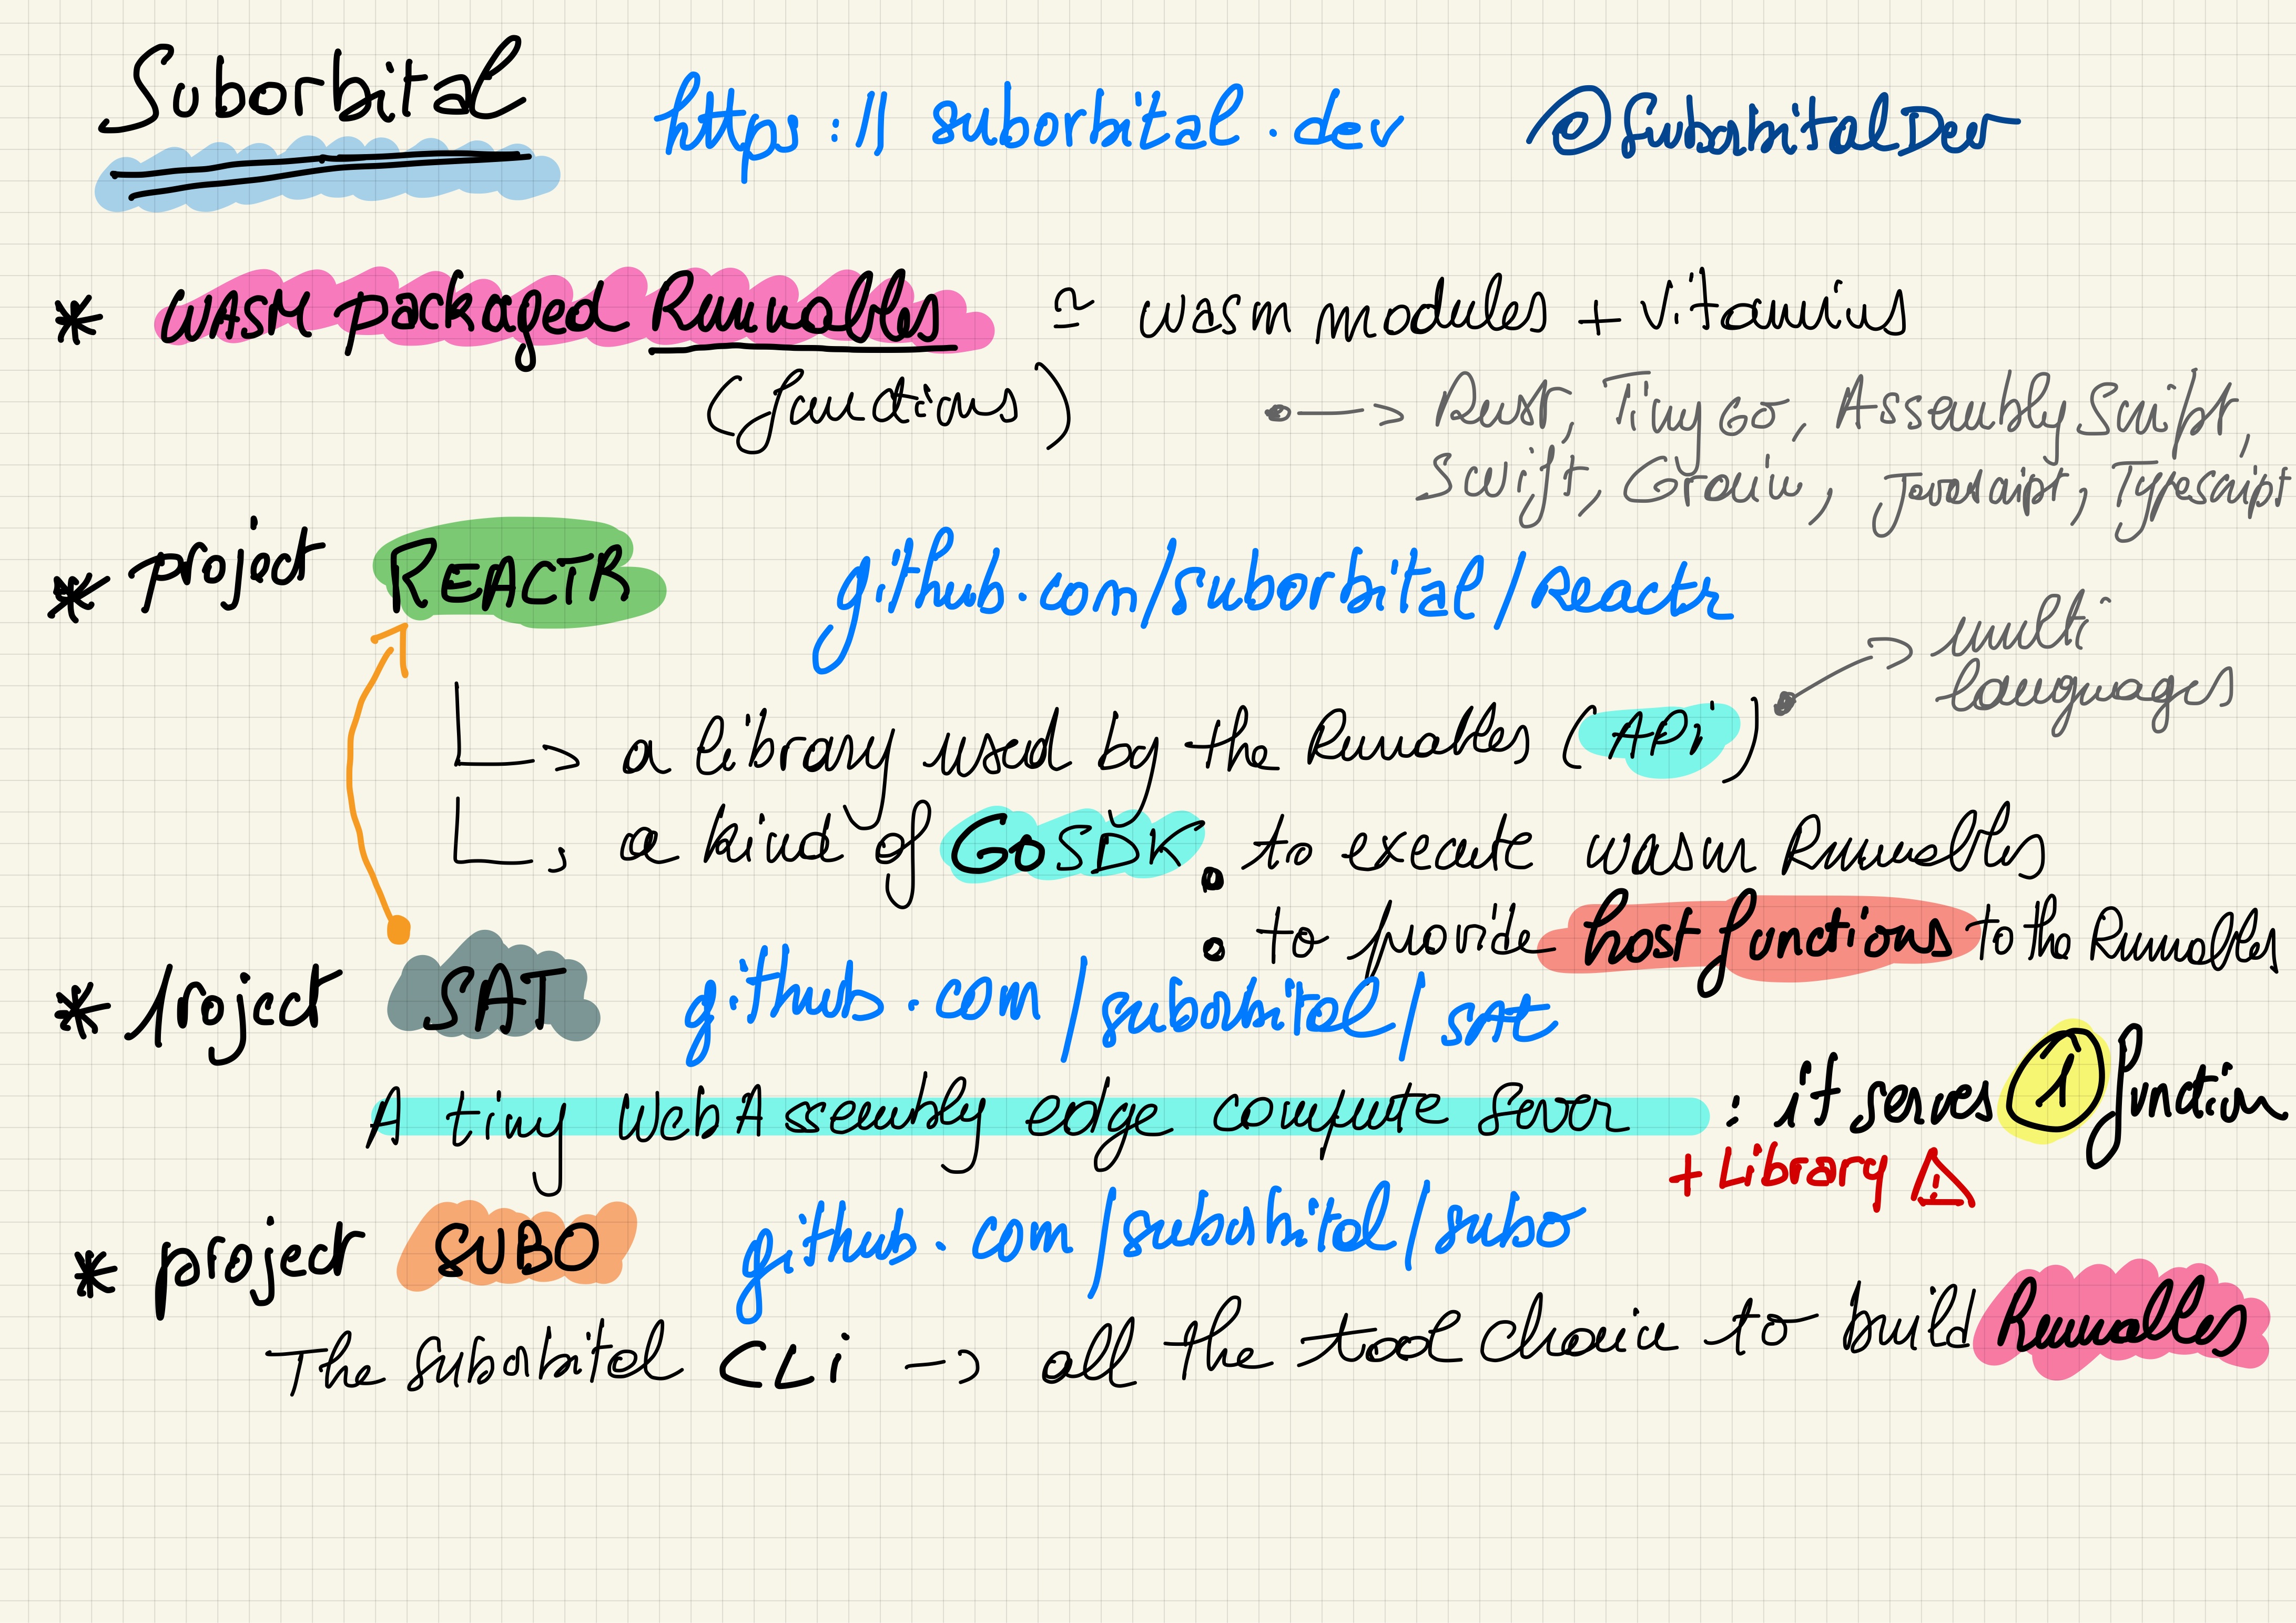 Suborbital https://suborbital.dev @SuborbitalDev
* WASM packaged Runnables ≃ wasm modules + vitamins
(functions)
Rust, TinyGo, AssemblyScript,
Swift, Grain, Javascript, Typescript
* project REACTR github.com/suborbital/reactr
multi
languages
a library used by the Runnables (APi)
a kind of GoSDK • to execute wasm Runnables
• to provide host functions to the Runnables
* project SAT github.com/suborbital/sat
A tiny WebAssembly edge compute server : it serves 1 function
+ Library ⚠
* project SUBO github.com/suborbital/subo
The suborbital CLi -> all the tool chain to build Runnables